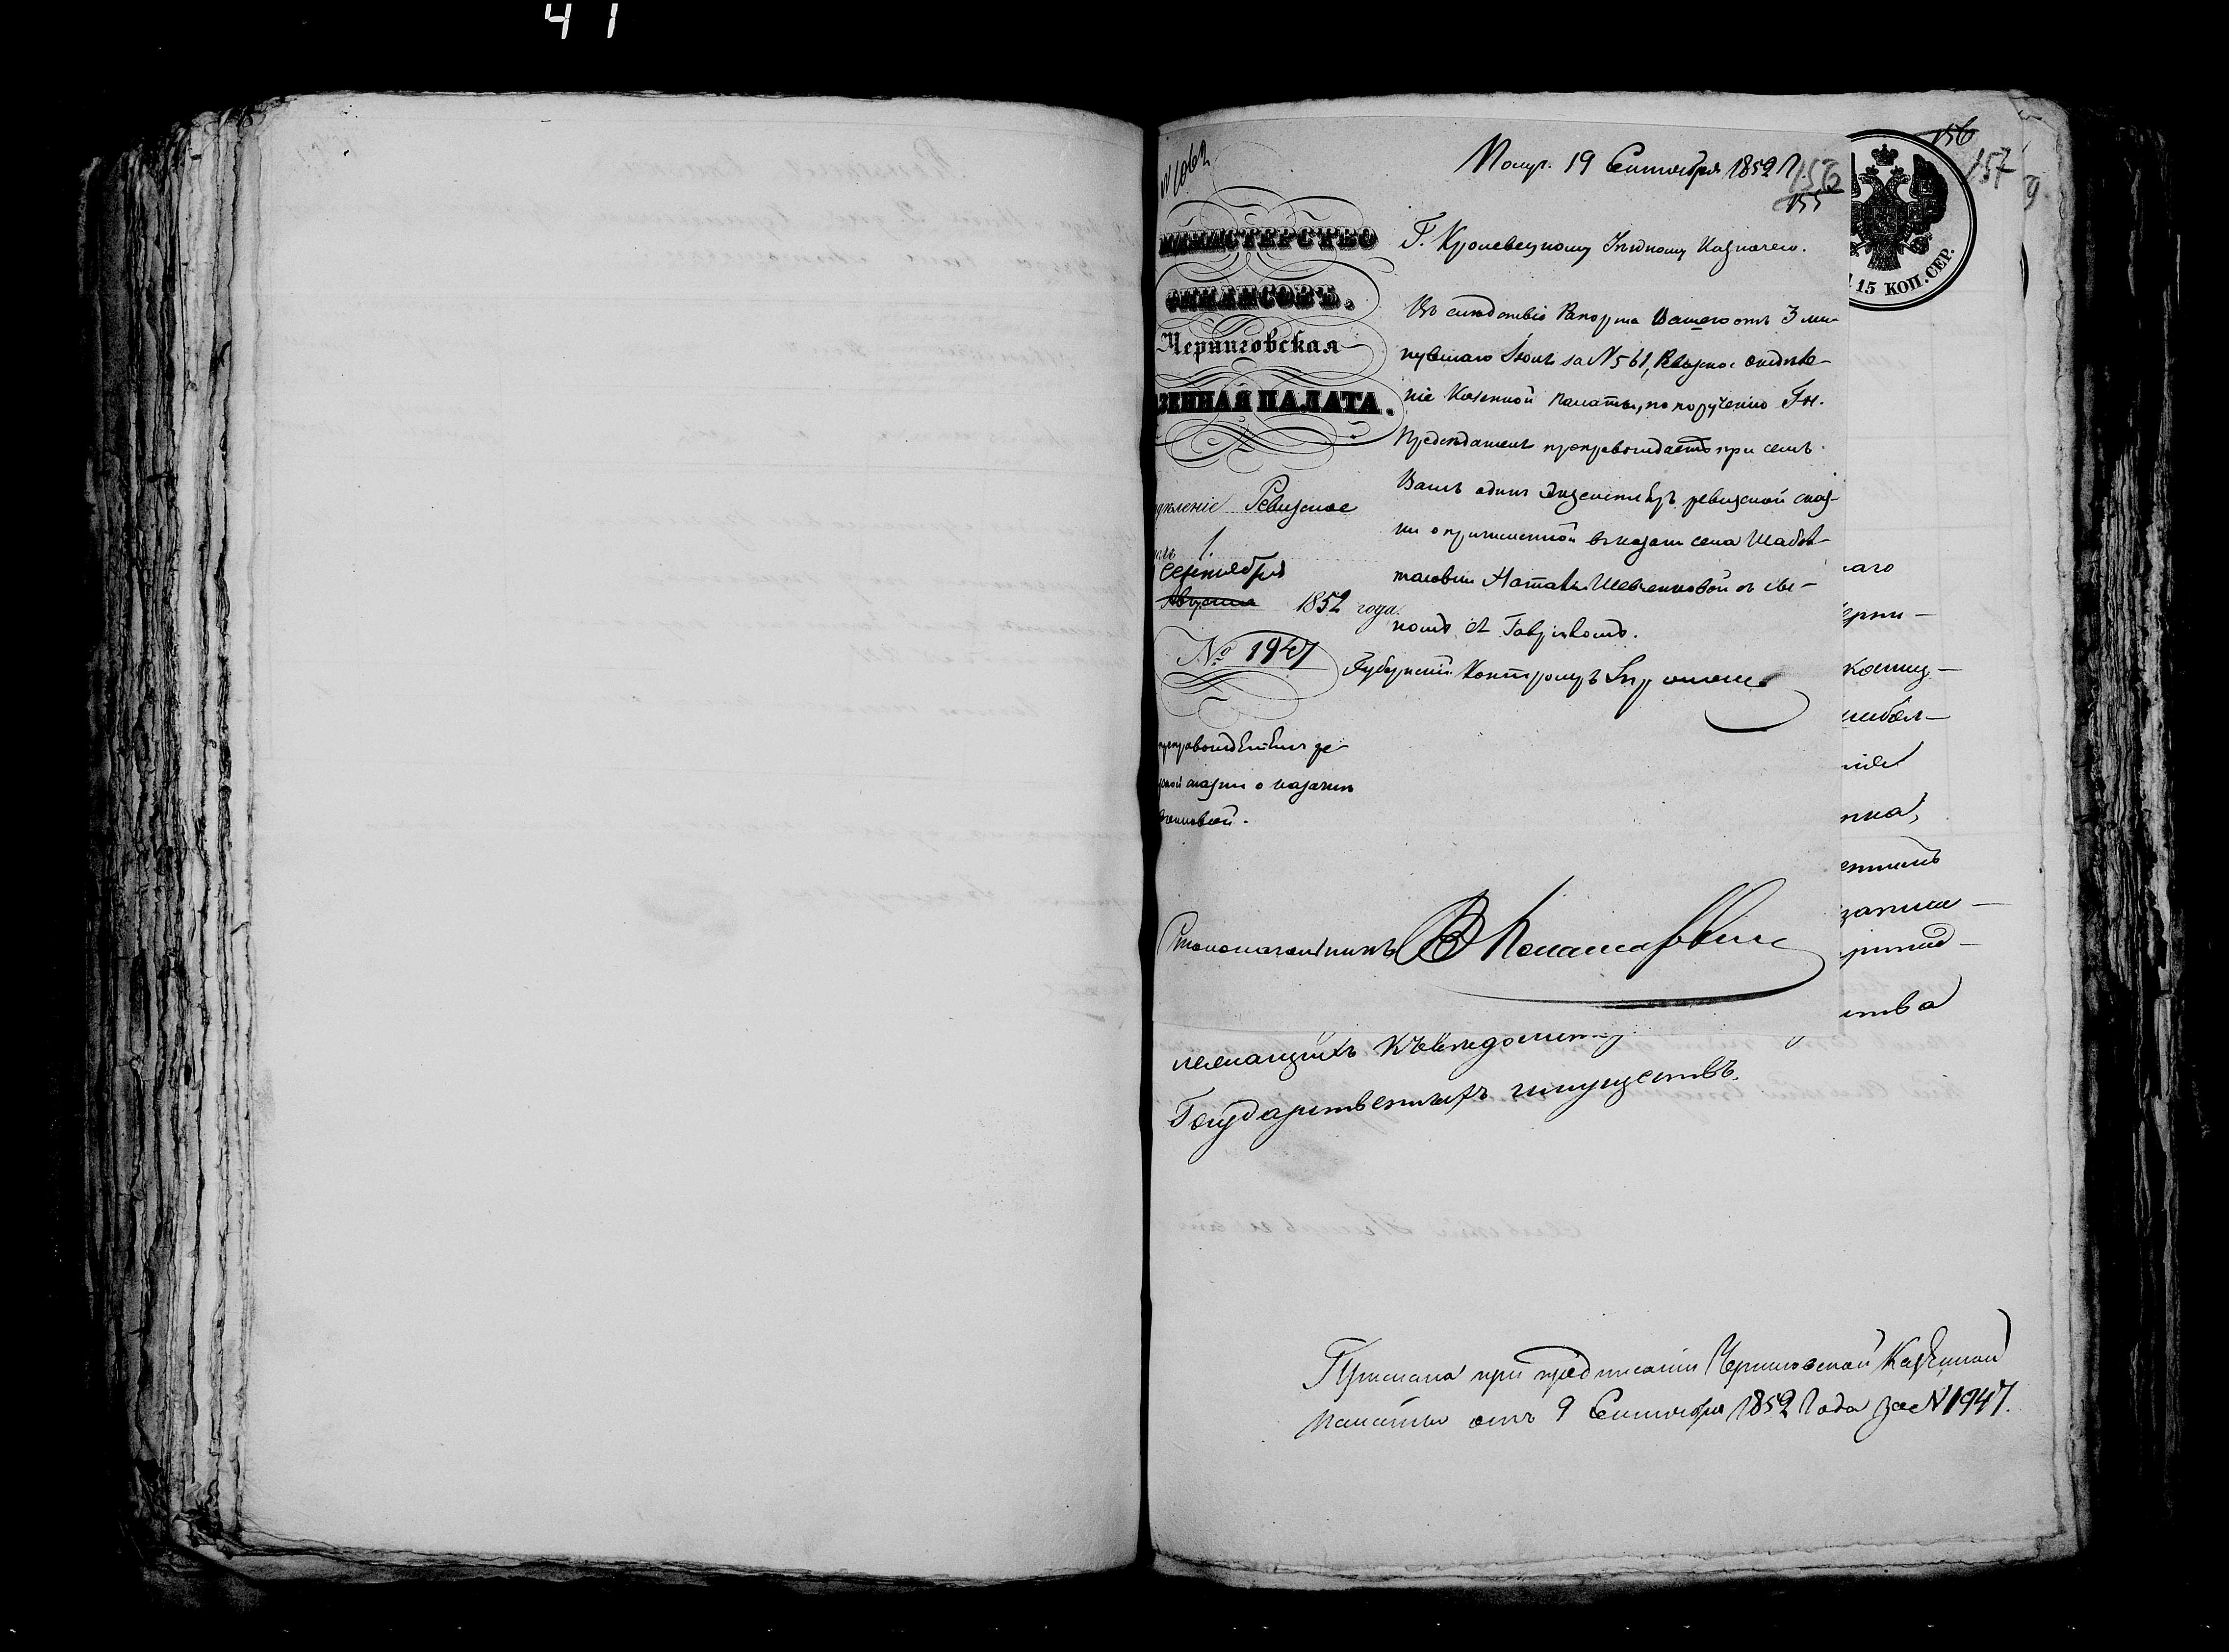 41
№ 1062
Получ. 19 Сентября 1852 г.
156
155
156
157
9
МИНИСТЕРСТВО
ФИНАНСОВЪ.
Черниговская
ЗЕННАЯ ПАЛАТА.
дѣленіе Ревизское
1.
Сентября
Августа 1852 года.
№ 1947
препровожденіемъ ре-
ской сказки о казачкѣ
Г. Кролевецкому Уѣздному Казначею.
Въ слѣдствіе Рапорта Вашего отъ 3 ми-
нувшаго Іюля за № 561, Ревизское отдѣле-
ніе Казенной Палаты, по порученію Гн.
Предсѣдателя препровождаетъ при семъ
Вамъ одинъ экземпляръ ревизской сказ-
ки о причисленной въ казаки села Шабал-
таѣевки Наталіи Шевченковой съ сы-
номъ Гавріиломъ.
Губернскій Контролеръ
Столоначальникъ
15 КОП. СЕР.
наго
ерни-
козиц-
нка,
записа-
ства
лежащихъ къ вѣдомству
Государственныхъ имуществъ.
Прислана при предписаніи Черниговской Казенной
Палаты отъ 9 Сентября 1852 года за № 1947.